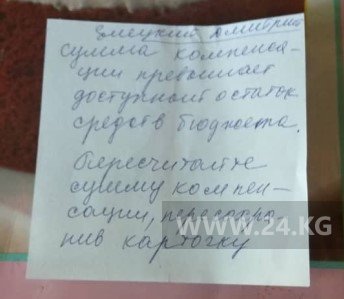 Змецкий Дмитрий
сумма компенса-
ции превышает
доступный остаток
средств бюджета.
Пересчитайте
сумму компен-
сации, пересохра
нив карточку
www.24.kg